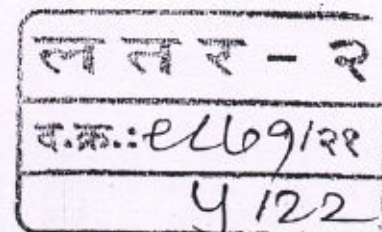 ल त र - २
द.क्र.: ९८७१/२१
५/२२